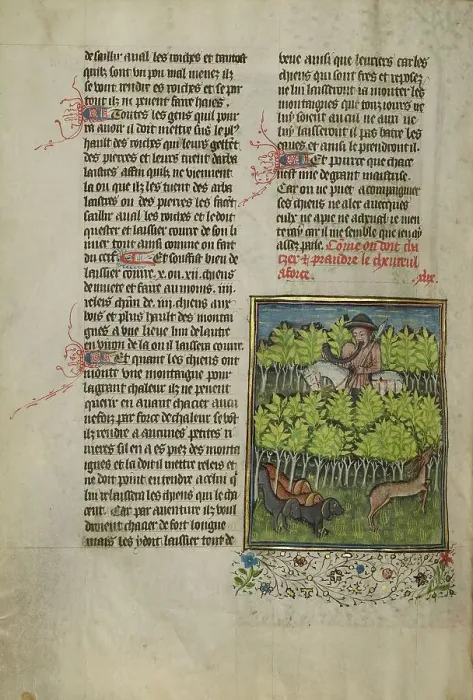 de saillir aual les roches et tantost
quilz sont un pou mal menez ilz
se vont rendre es roches et se par
tout ilz ni peuent faire
Et toutes les gens quil pour
ra auoir il doit mettre sus le plus
hault des roches qui leurs gettent
des pierres et leurs tirent darba
lestes affin quilz ne viennent
la ou que ilz les tirent des arba
lestes ou des pierres les facent
saillir aual les roches et le doit
quester et laissier courre de son li
mier tout ainsi comme on fait
du cerf. Et souffist bien de
laissier courre .x. ou .xii. chiens
de muete et faire au moins .iii.
releis chun de .iii. chiens aux
bois et plus hault des montai
gnes a une lieue lun de lautre
enuiron de la ou il laissera courre.
Et quant les chiens ont
monte une montaigne pour
la grant chaleur ilz ne peuent
querir en auant chacier aucu
nefoiz par force de chaleur se vot
ilz rendre a aucunes petites ri
uieres sil en a es piez des monta
ignes et la doit il mettre releis et
ne doit point entendre a celui q
lui relaissent les chiens qui le cha
cent. Car par auenture ilz voul
droient chacer de fort longue
mais les y doit laissier tout de
uene ainsi que leuriers car les
chiens qui sont fres et reposez
ne lui laisseront ia monter les
montaignes que tousiours ne
luy soient au cul ne aux ri
luy laisseront il pas batre les
eques et ainsi le prendront il.
Et pource que chace
nest mie de grant maistrise.
Car on ne puet acompaignier
ses chiens ne aler auecques
eulx ne a pie ne a cheual ie nen
vueil car il me semble que ien ay
assez parle. Come on doit cha
cer et prandre le cheureul
a force. .xlix.